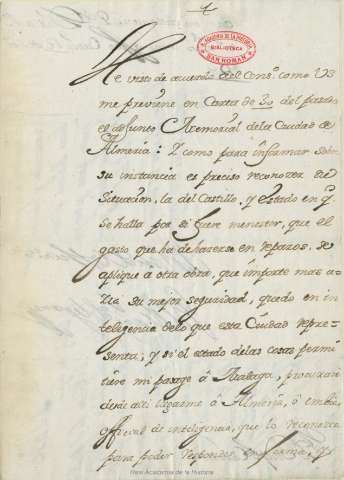 1
R. ACADEMIA DE LA HISTORIA
BIBLIOTECA
SAN ROMAN
He visto de acuerdo del Cons.º como VS
me previene en Carta de 30 del pasado
el adjunto Memorial de la Ciudad de
Almeria: Y como para informar sobre
su instancia es preciso reconozer su
situacion, la del Castillo, y estado en q.
se halla por si fuere menester, que el
gasto que ha de hazerse en reparos, se
aplique à otra obra, que importe mas a
zia su mejor seguridad, quedo en in
teligencia delo que esta Ciudad repre-
senta; y si el estado delas cosas permi
tiere mi pasage à Malaga, procurarè
desde alli llegarme à Almeria, ò embiar
official de inteligencia, que lo reconozca
para poder responder en forma, y
Real Academia de la Historia